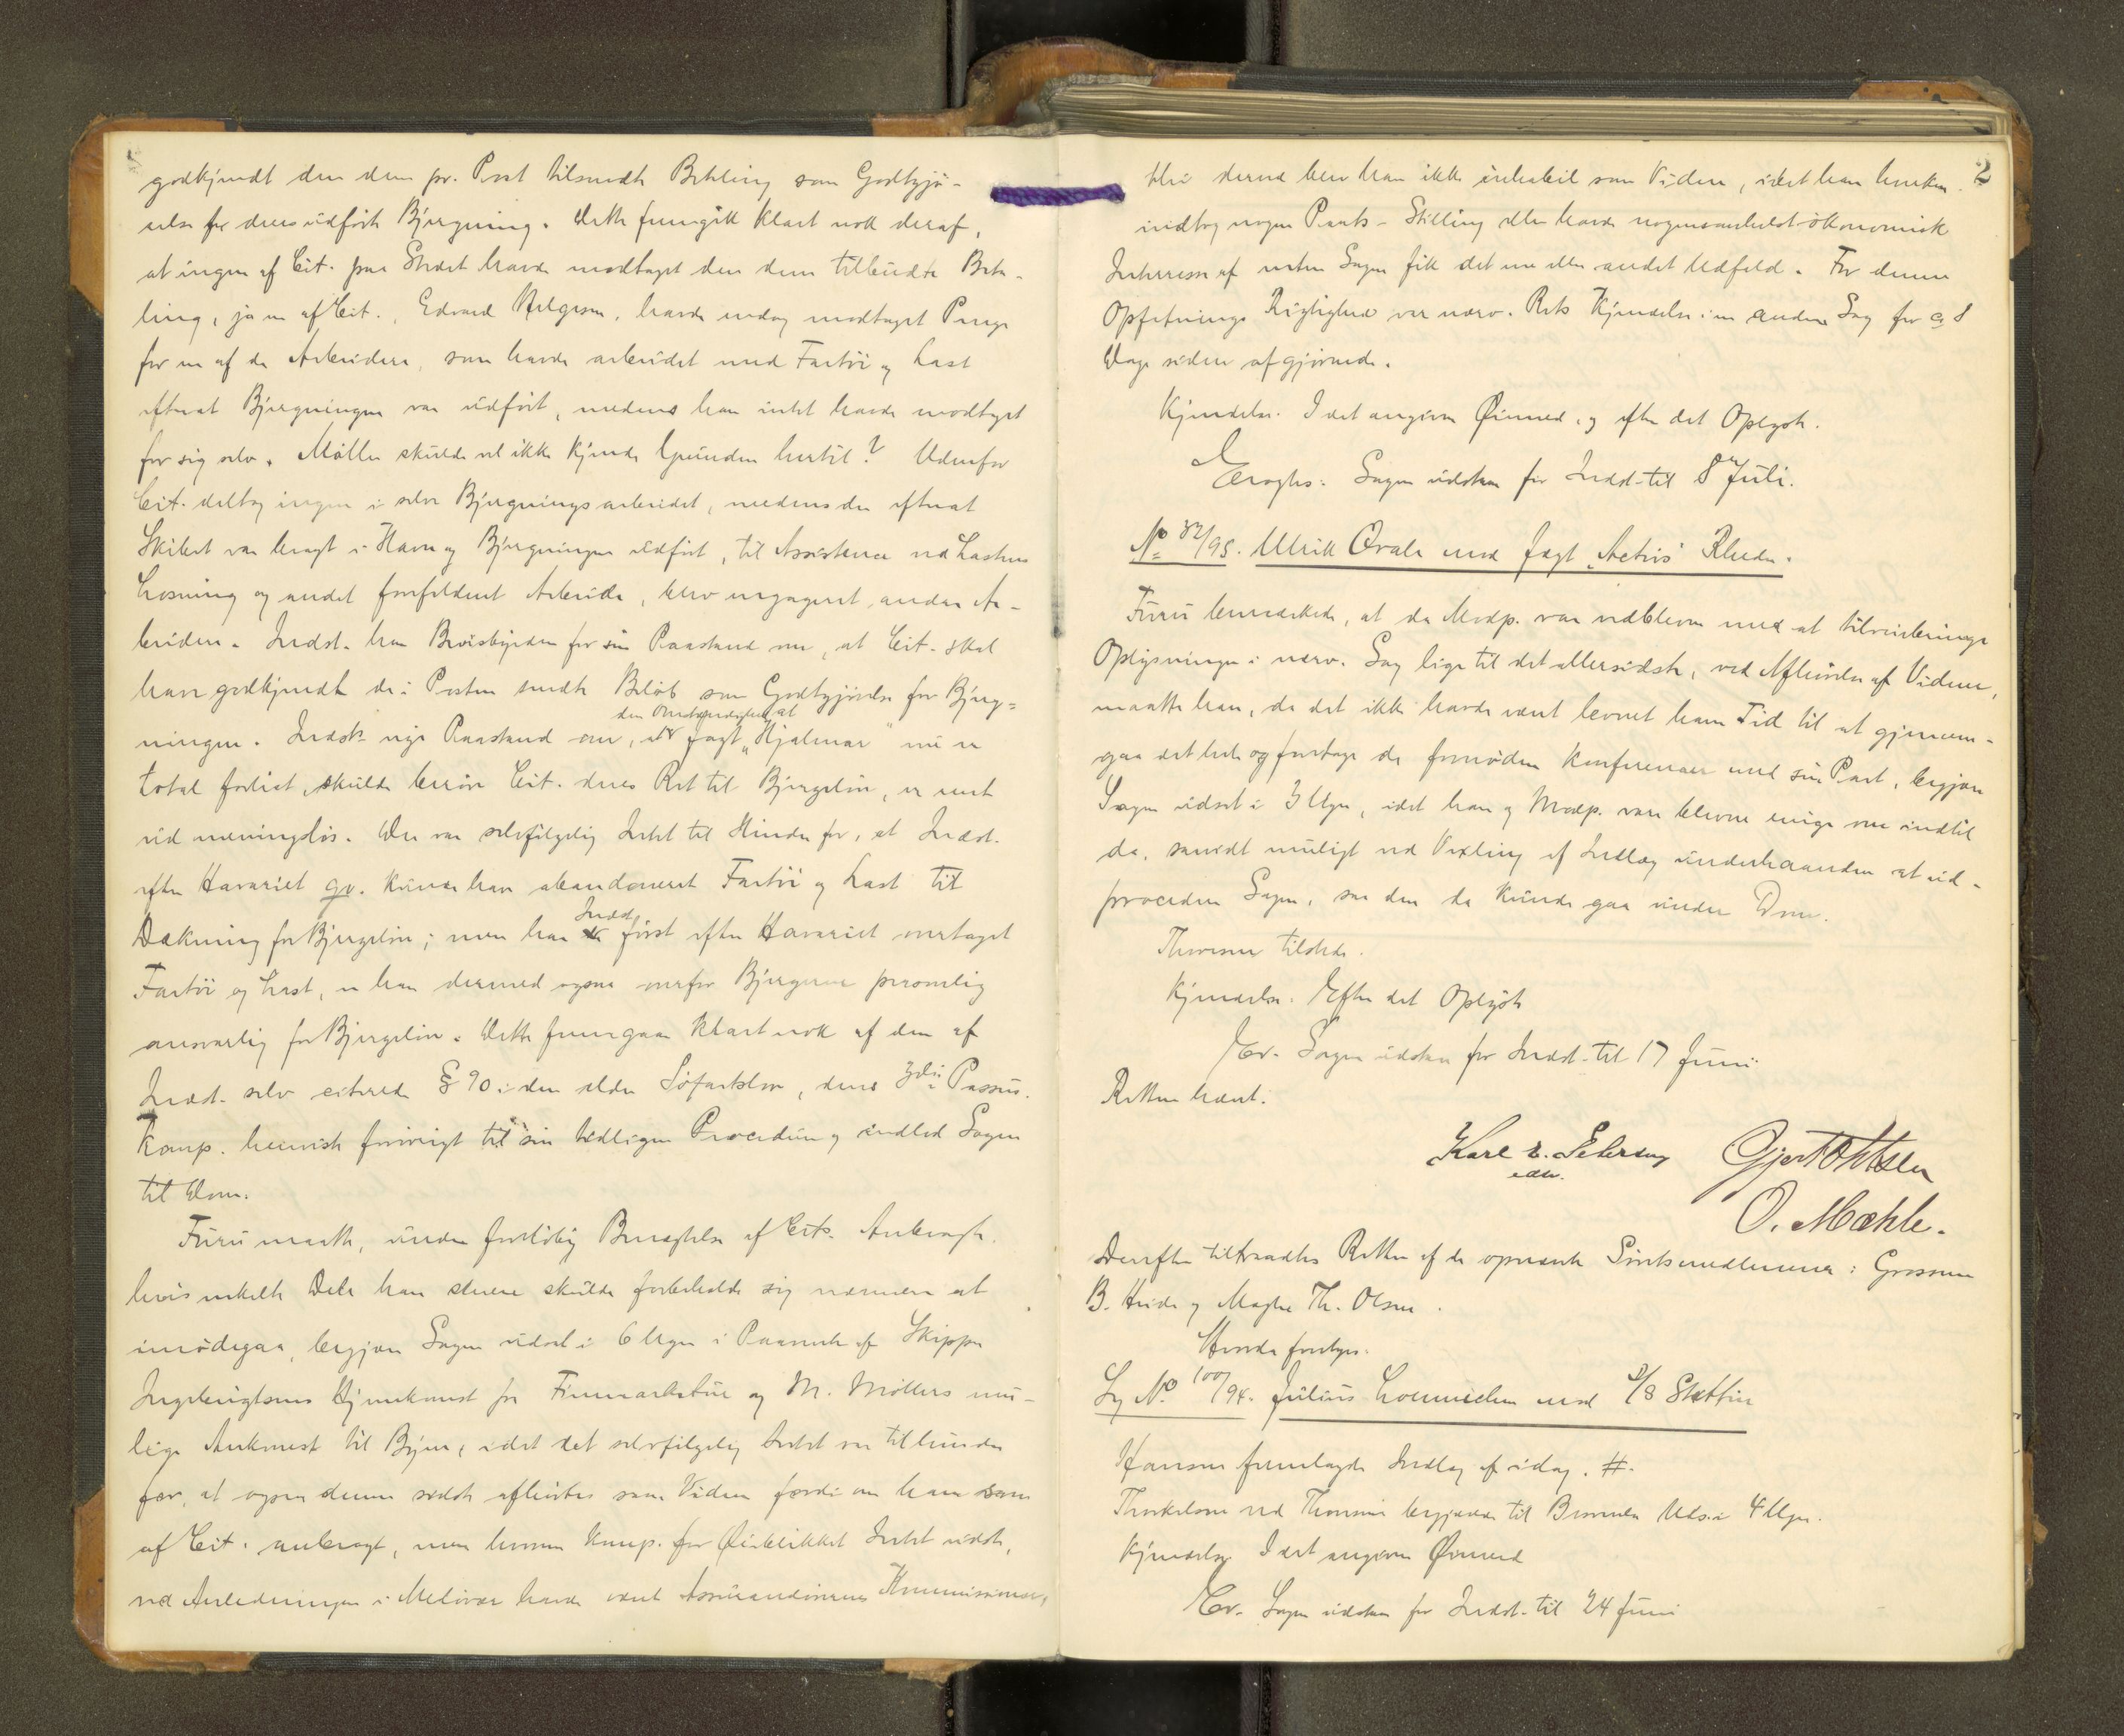 godkjendt den dem pr. Post tilsendte Betaling som Godtgjø-
relse for deres udførte Bjergning. Dette fremgik klart nok deraf,
at ingen af Cit. paa Stedet havde modtaget den dem tilbudte Beta-
ling, ja en af Cit., Edvard Helgesen, havde endog modtaget Penge
for en af de Arbeidere, som havde arbeidet med Fartøi og Last
efterat Bjergningen var udført, medens han intet havde modtaget
for sig selv. Møller skulde vel ikke kjende Grunden hertil? Udenfor
Cit. deltog ingen i selve Bjergningsarbeidet, medens der efterat
Skibet var bragt i Havn og Bjergningen udført, til Assistance ved Lastens
Losning og andet forefaldent Arbeide, blev engageret andre Ar-
beidere. Indst. har Bevisbyrden for sin Paastand om, at Cit. skal
have godkjendt de i Posten sendte Beløb som Godtgjørelse for Bjerg-
den Omstændighed at
ningen. Indst. nye Paastand om, at Jagt „Hjalmar" nu er
total forlist, skulde berøve Cit. deres Ret til Bjergeløn, er rent
ud meningsløs. Der var selvfølgelig Intet til Hinder for, at Indst.
efter Havariet kunde have abandoneret Fartøi og Last til
Indst.
Dækning for Bjergeløn; men har først efter Havariet overtaget
Fartøi og Last, er han dermed ogsaa overfor Bjergerne personlig
ansvarlig for Bjergeløn. Dette fremgaar klart nok af den af
Indst. selv citerede § 90 i den ældre Søfartslov, dens 3die Passus.
Komp. henviste forøvrigt til sin tidligere Procedure og indlod Sagen
til Dom.
Furu maatte, under foreløbig Benægtelse af Cits. Anbragte,
hvis enkelte Dele han senere skulde forbeholde sig nærmere at
imødegaa, begjære Sagen udsat i 6 Uger i Paavente af Skipper
Ingebrigtsens Hjemkomst fra Finmarkstur og M. Møllers mu-
lige Ankomst til Byen, idet det selvfølgelig Intet var tilhinder
for, at ogsaa denne sidste afhørtes som Vidne fordi om han som
af Cit. anbragt, men hvorom Komp. for Øieblikket Intet vidste,
ved Anledningen i Meløvær havde været Assurandørernes Kommissionær,
2
thi derved blev han ikke inhabil som Vidne, idet han hverken
indtog nogen Parts-Stilling eller havde nogensomhelst økonomisk
Interesse af enten Sagen fik det ene eller andet Udfald. For denne
Opfatnings Rigtighed var nærv. Rets Kjendelse i en anden Sag for ca 8
Dage siden afgjørende.
Kjendelse. I det angivne Øiemed, og efter det Oplyste.
Eragtes: Sagen udsættes for Indst. til 8 Juli.
No 32/95. Ulrik Qvale mod Jagt „Activ" Rheder.
Furu bemærkede, at da Modp. var vedbleven med at tilveiebringe
Oplysninger i nærv. Sag lige til det allersidste, ved Afhørelse af Vidner,
maatte han, da det ikke havde været levnet ham Tid til at gjennem-
gaa det hele og foretage de fornødne Konferencer med sin Part, begjære
Sagen udsat i 3 Uger, idet han og Modp. vare blevne enige om indtil
da, saavidt muligt ved Vexling af Indlæg underhaanden at ud-
procedere Sagen, saa den da kunde gaa under Dom.
Thoresen tilstede.
Kjendelse. Efter det Oplyste
Er. Sagen udsættes for Indst. til 17 Juni
Retten hævet.
Karl Petersen
edsv.
Gjert Ottesen
O. Mæhle.
Derefter tiltraadtes Retten af de opnævnte Søretsmedlemmer: Grosserer
B. Heide og Mægler Th. Olsen.
Hvorda foretoges.
Sg No 100/94. Julius Lorentzen mod S/S Stettin
Hansen fremlagde Indlæg af idag. #.
Thorkelsen ved Thommesen begjærede til Besvarelse Uds. i 4 Uger.
Kjendelse I det angivne Øiemed
Er. Sagen udsættes for Indst. til 24 Juni